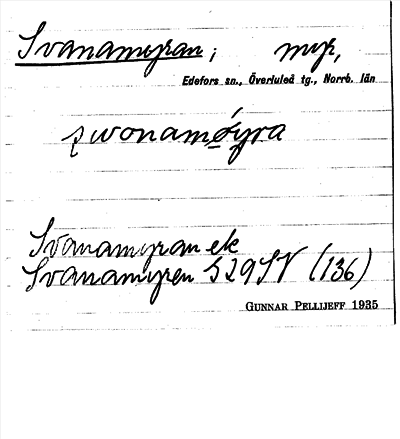 Svanamyran; myr,
Edefors sn., Överluleå tg., Norrb. län
Svanamyran ek
Svanamyren 529SV (136)
GUNNAR PELLIJEFF 1935